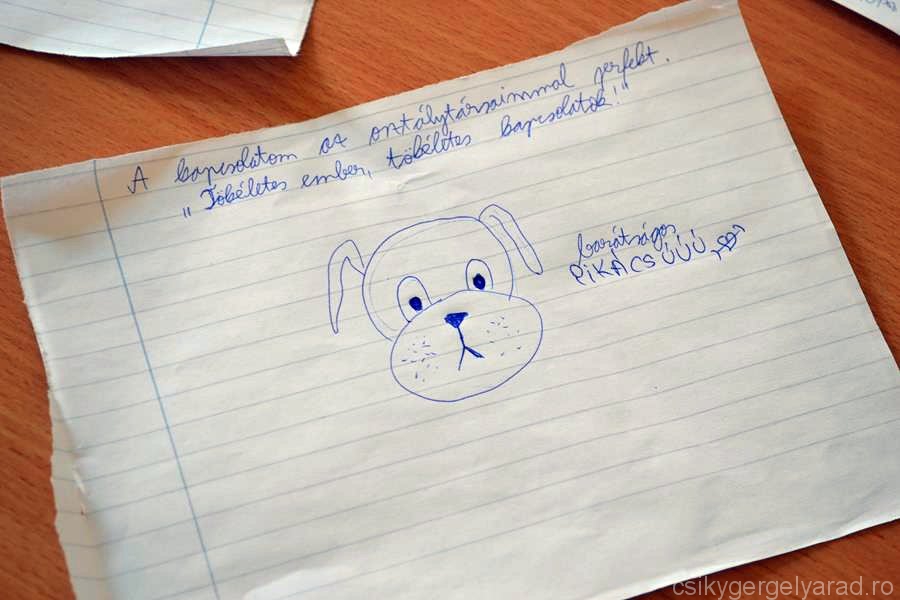 A kapcsolatom az osztálytársaimmal perfekt.
„Töbéletes ember, töbéletes kapcsolatok!"
barátságos
PiKÁCSÚÚÚ
csikygergelyarad.ro